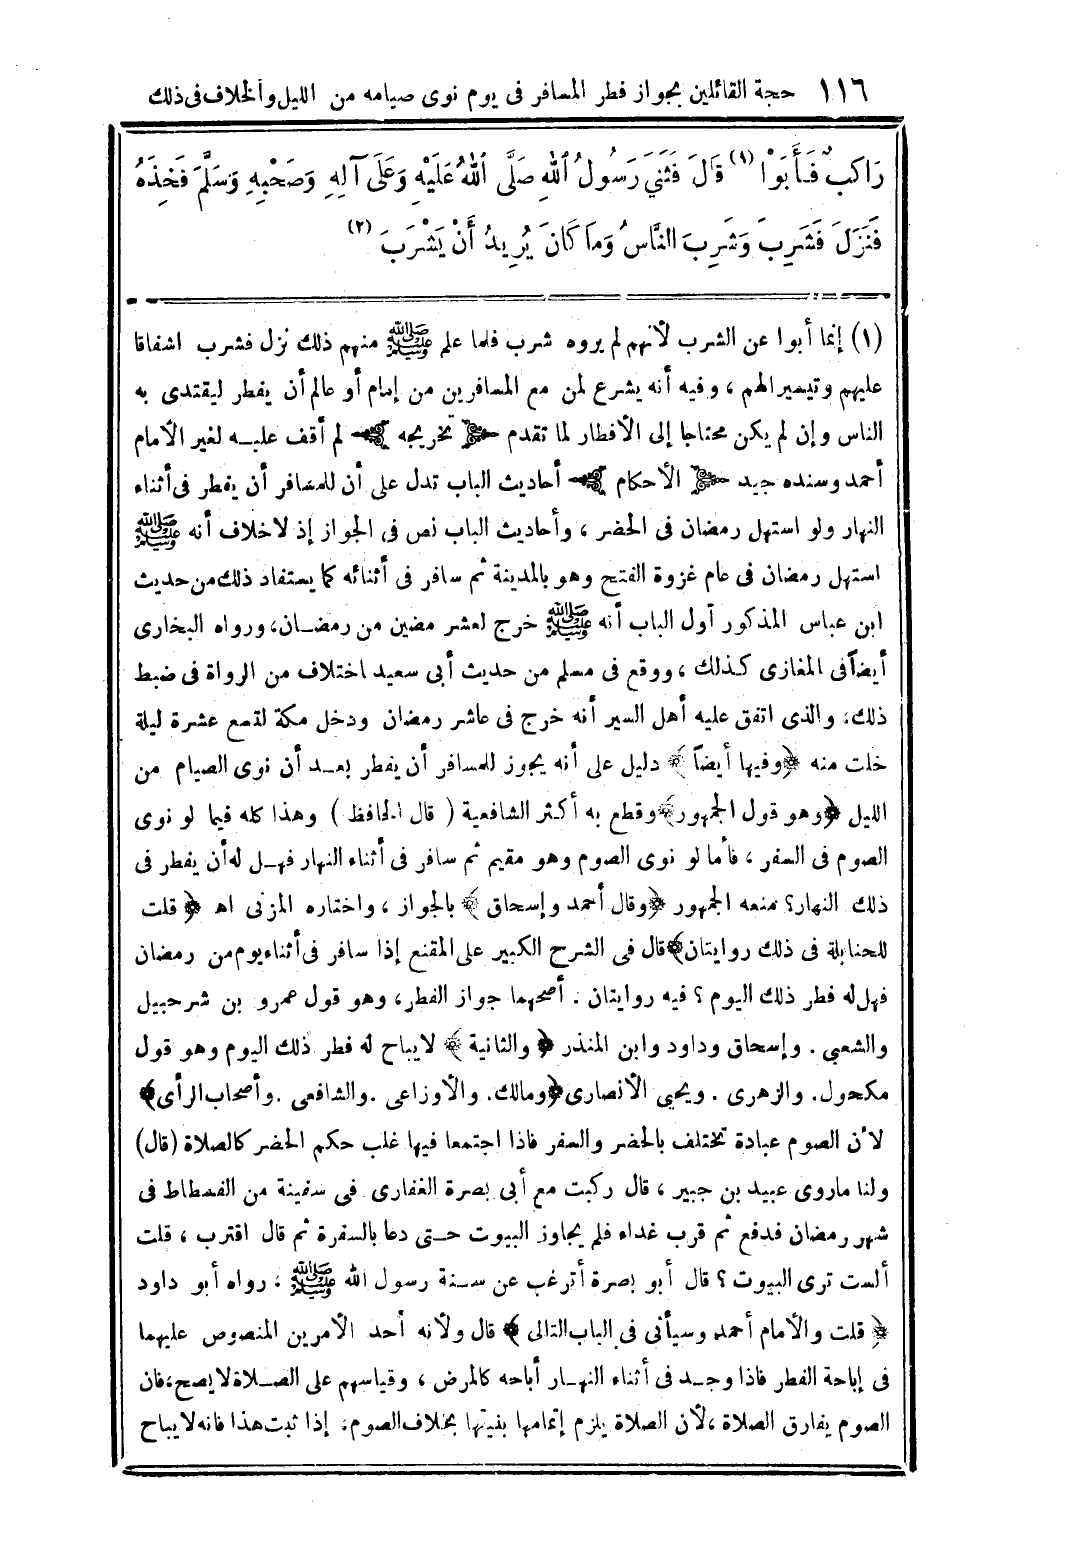 ١١٦ حجة القائلين بجواز فطر المسافر فى يوم نوى صيامه من الليل والخلاف فى ذلك
رَاكِبٌ فَأَبَوْا (١) قَالَ فَثَنَى رَسُولُ اللهِ صَلَّى اللهُ عَلَيْهِ وَعَلَى آلِهِ وَصَحْبِهِ وَسَلَّمَ فَخِذَهُ
فَنَزَلَ فَشَرِبَ وَشَرِبَ النَّاسُ وَمَا كَانَ يُرِيدُ أَنْ يَشْرَبَ (٢)
(١) إنما أبوا عن الشرب لأنهم لم يروه شرب فلما علم ﷺ منهم ذلك نزل فشرب اشفاقا
عليهم وتيسيرا لهم ، وفيه أنه يشرع لمن مع المسافرين من إمام أو عالم أن يفطر ليقتدى به
الناس وإن لم يكن محتاجا إلى الأفطار لما تقدم ﴿ تخريجه ﴾ لم أقف عليه لغير الأمام
أحمد وسنده جيد ﴿ الأحكام ﴾ أحاديث الباب تدل على أن للمسافر أن يفطر فى أثناء
النهار ولو استهل رمضان فى الحضر ، وأحاديث الباب نص فى الجواز إذ لا خلاف أنه ﷺ
استهل رمضان فى عام غزوة الفتح وهو بالمدينة ثم سافر فى أثنائه كما يستفاد ذلك من حديث
ابن عباس المذكور أول الباب أنه ﷺ خرج لعشر مضين من رمضان، ورواه البخارى
أيضاً فى المغازى كذلك ، ووقع فى مسلم من حديث أبى سعيد اختلاف من الرواة فى ضبط
ذلك، والذى اتفق عليه أهل السير أنه خرج فى عاشر رمضان ودخل مكة لتسع عشرة ليلة
خلت منه ﴿وفيها أيضاً ﴾ دليل على أنه يجوز للمسافر أن يفطر بعد أن نوى الصيام من
الليل ﴿وهو قول الجمهور﴾ وقطع به أكثر الشافعية ( قال الحافظ ) وهذا كله فيما لو نوى
الصوم فى السفر ، فأما لو نوى الصوم وهو مقيم ثم سافر فى أثناء النهار فهل له أن يفطر فى
ذلك النهار؟ منعه الجمهور ﴿وقال أحمد وإسحاق ﴾ بالجواز ، واختاره المزنى اهـ ﴿ قلت
للحنابلة فى ذلك روايتان﴾ قال فى الشرح الكبير على المقنع إذا سافر فى أثناء يوم من رمضان
فهل له فطر ذلك اليوم ؟ فيه روايتان . أصحهما جواز الفطر، وهو قول عمرو بن شرحبيل
والشعبي . وإسحاق وداود وابن المنذر ﴿ والثانية ﴾ لا يباح له فطر ذلك اليوم وهو قول
مكحول. والزهرى . ويحيى الأنصارى ﴿ومالك. والأوزاعى . والشافعى . وأصحاب الرأى﴾
لأن الصوم عبادة تختلف بالحضر والسفر فاذا اجتمعا فيها غلب حكم الحضر كالصلاة (قال)
ولنا ماروى عبيد بن جبير ، قال ركبت مع أبى بصرة الغفارى فى سفينة من الفسطاط فى
شهر رمضان فدفع ثم قرب غداء فلم يجاوز البيوت حتى دعا بالسفرة ثم قال اقترب ، قلت
ألست ترى البيوت ؟ قال أبو بصرة أترغب عن سنة رسول الله ﷺ ، رواه أبو داود
﴿ قلت والأمام أحمد وسيأتى فى الباب التالى ﴾ قال ولأنه أحد الأمرين المنصوص عليهما
فى إباحة الفطر فاذا وجد فى أثناء النهار أباحه كالمرض ، وقياسهم على الصلاة لا يصح، فان
الصوم يفارق الصلاة ، لأن الصلاة يلزم إتمامها بنيتها بخلاف الصوم. إذا ثبت هذا فانه لا يباح